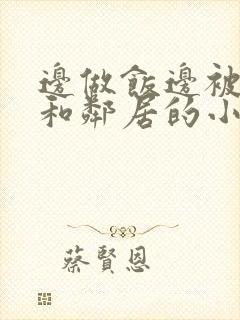 邊做飯邊被
和鄰居的小
蔡賢恩